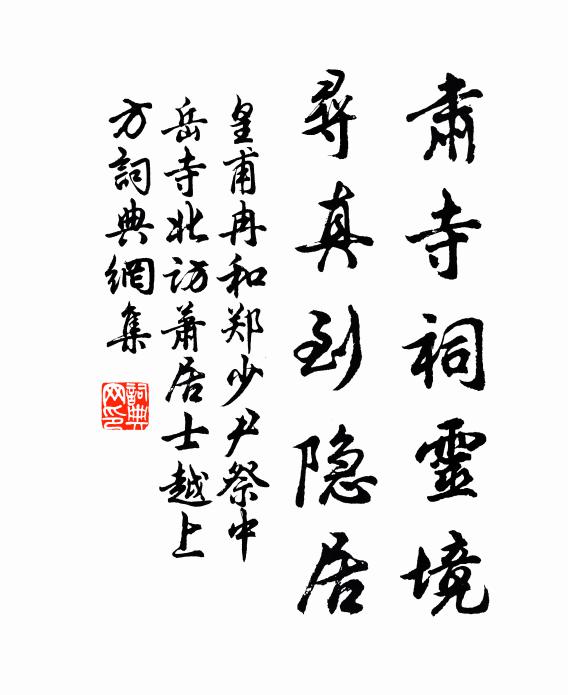 肅寺祠靈境
尋真到隐居
皇甫冉和郑少尹祭中
岳寺北访萧居士越上
方詞典網集
詞典
网印